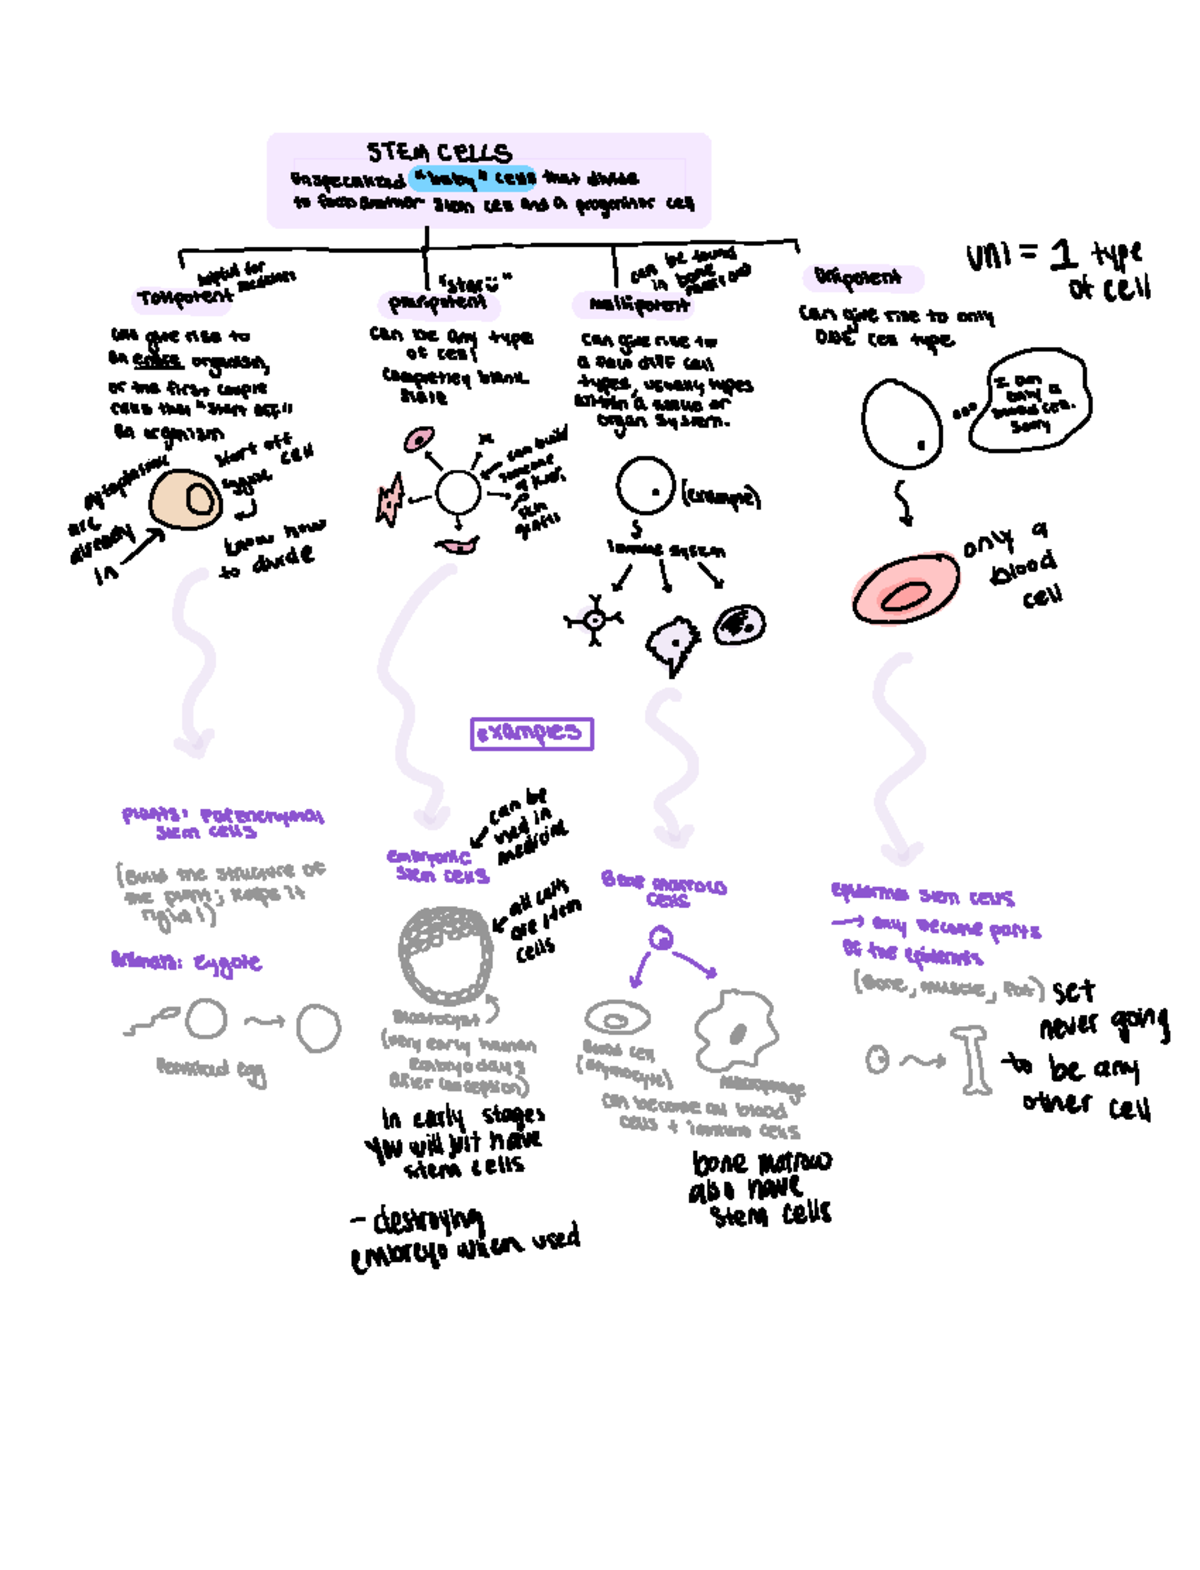 STEM CELLS
unspecialized "baby" cells that divide
to form another stem cell and a progenitor cell
helpful for
medicines
Totipotent
can give rise to
an entire organism,
or the first couple
cells that "start off"
an organism
start off
zygote cell
cytoplasmic
are
already
in
know how
to divide
"star"
pluripotent
can be any type
of cell
completley blank
slate
can build
someone
a liver,
skin
grafts
can be found
in bone
marrow
multipotent
can give rise to
a few diff cell
types, usually types
within a tissue or
organ system.
(example)
immune system
unipotent
can give rise to only
one cell type
uni = 1 type
of cell
I am
only a
blood cell.
sorry
only a
blood
cell
examples
plants: parenchymal
stem cells
(Build the structure of
the plant; keeps it
rigid!)
Animals: zygote
fertilized egg
can be
used in
medicine
embryonic
stem cells
all cells
are stem
cells
Blastocyst
(very early human
embryo days
after conception)
In early stages
you will just have
stem cells
- destroying
embreyo when used
Bone marrow
cells
Blood cell
Macrophage
can become all blood
cells + immune cells
bone marrow
also have
stem cells
epidermal stem cells
→ only become parts
of the epidermis
(Bone, muscle, fat) set
never going
to be any
other cell